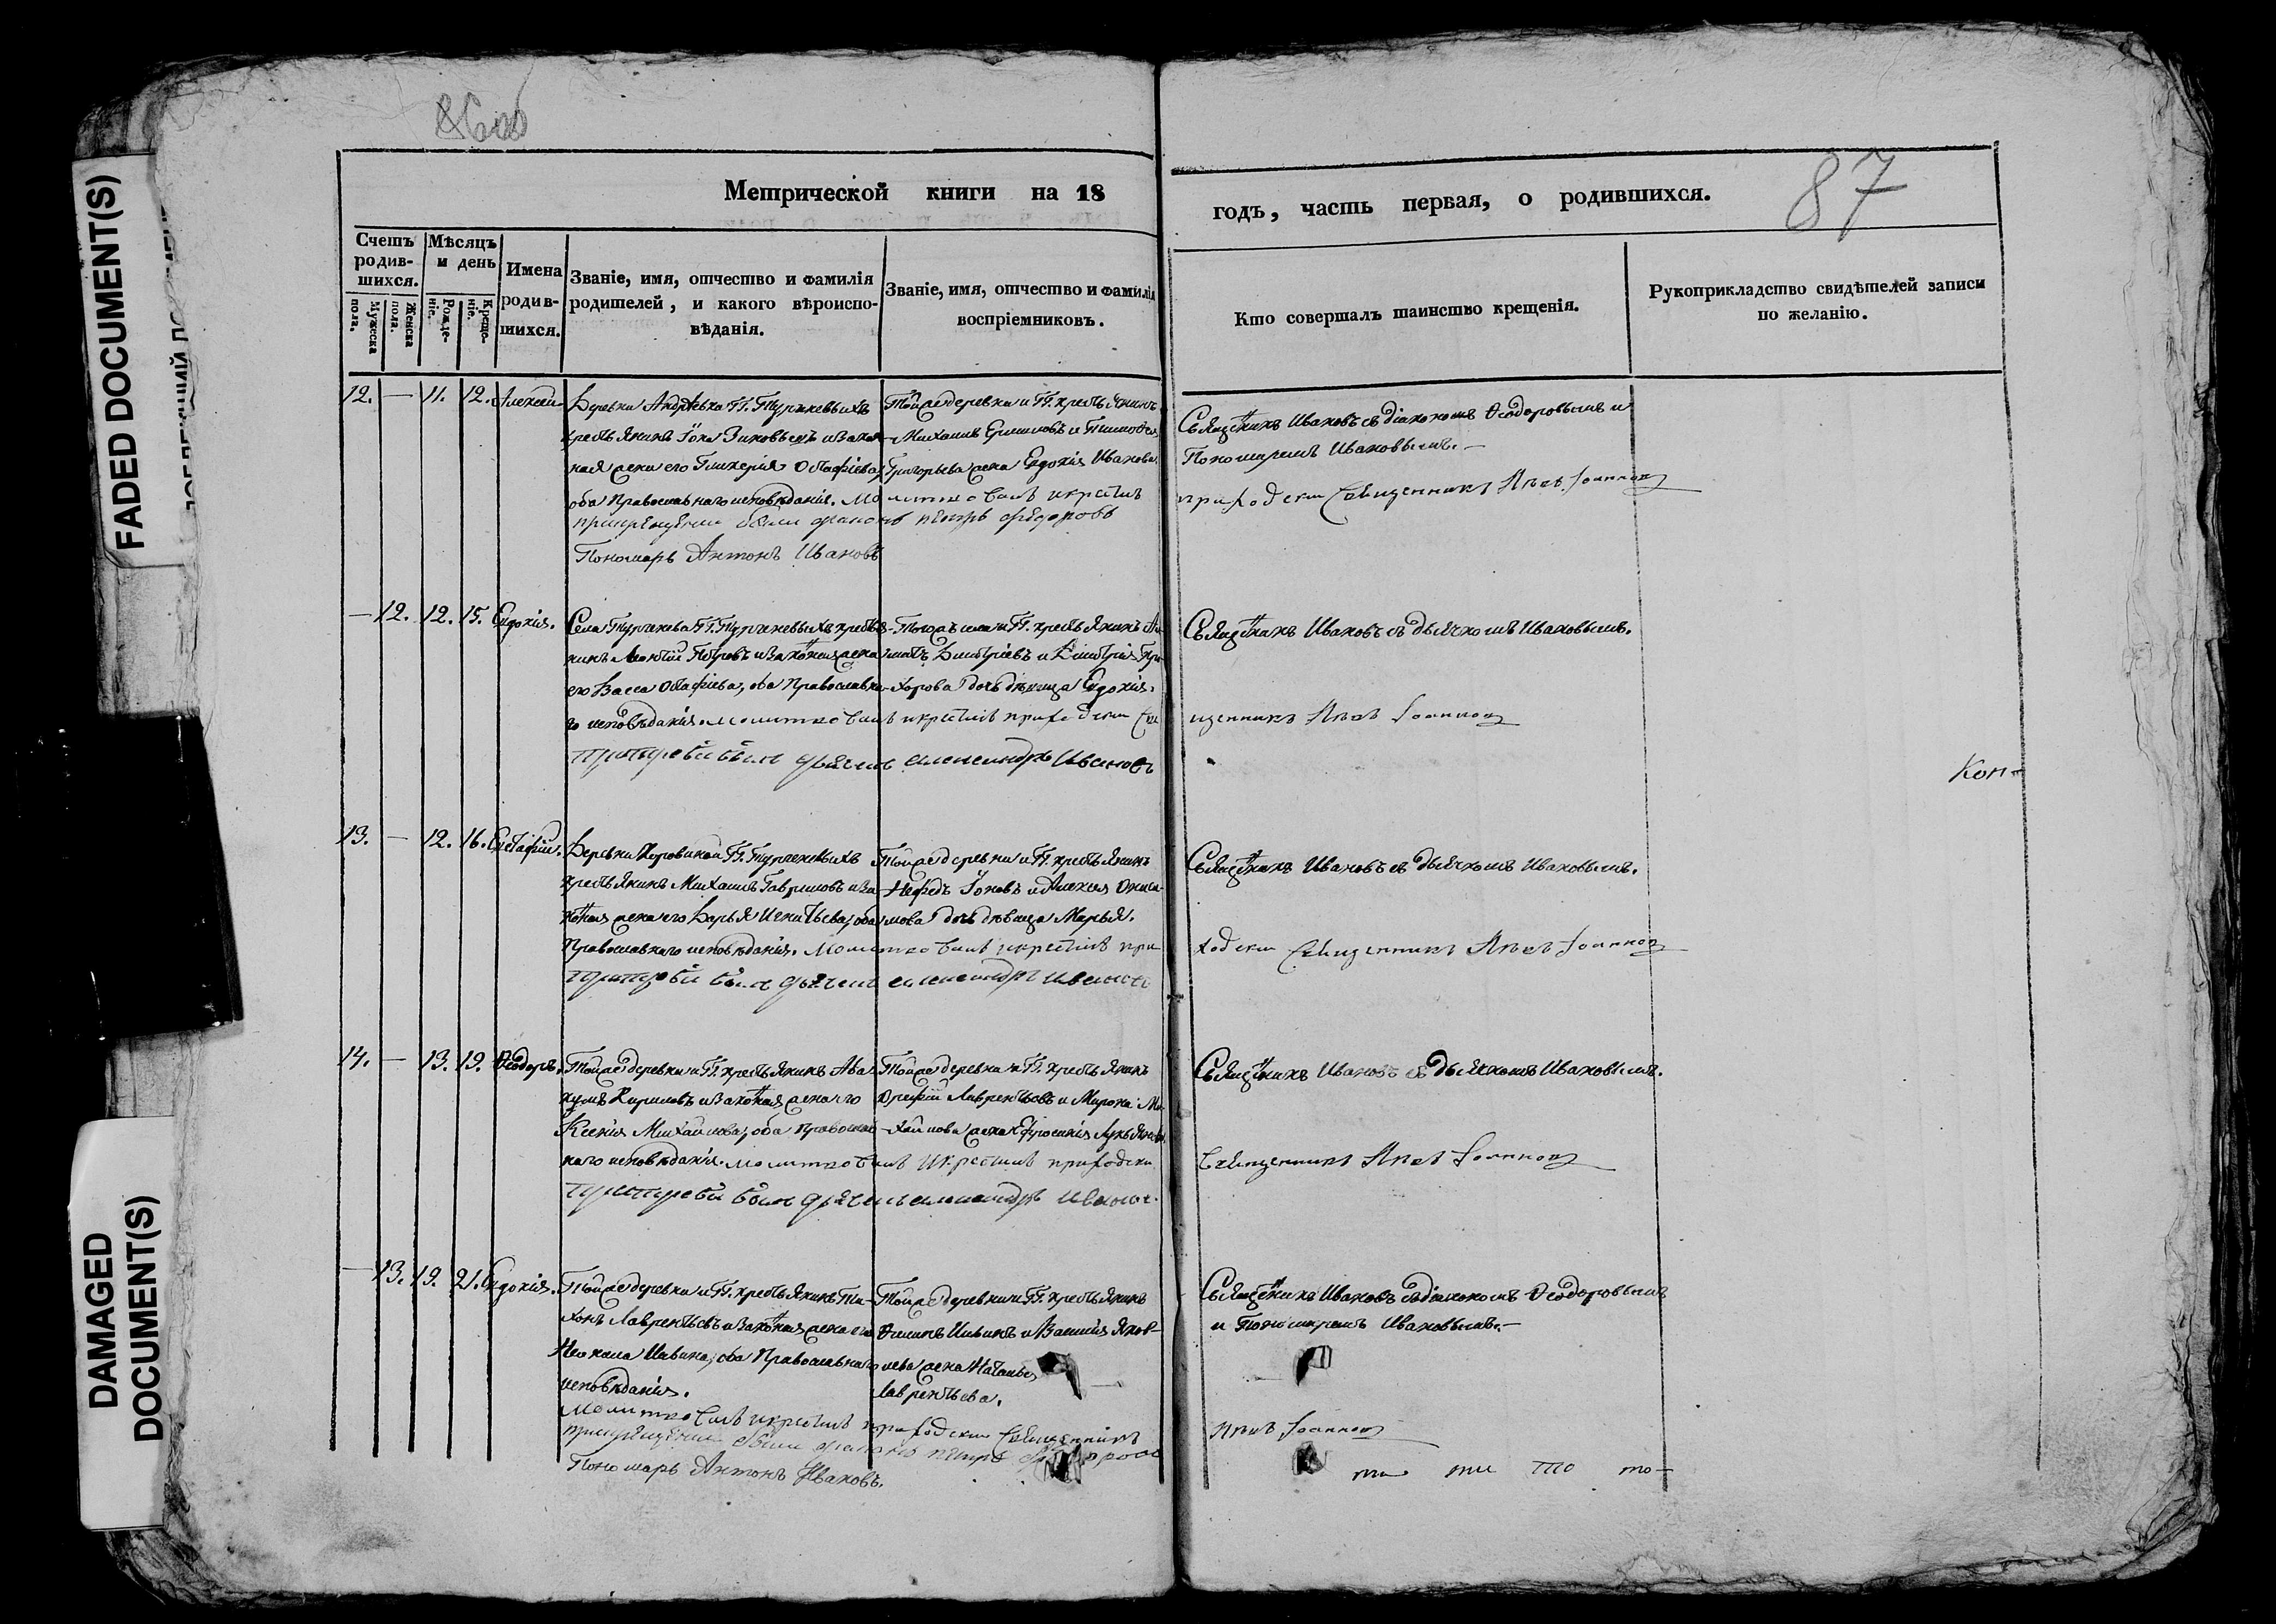 86об
Метрической книги на 18
годъ, часть первая, о родившихся.
87
Счетъ родившихся.
Мужеска пола.
Женска пола.
Мѣсяцъ и день
Рожденіе.
Крещеніе.
Имена родившихся.
Званіе, имя, отчество и фамилія
родителей, и какого вѣроиспо-
вѣданія.
Званіе, имя, отчество и фамилія
воспріемниковъ.
Кто совершалъ таинство крещенія.
Рукоприкладство свидѣтелей записи
по желанію.
12. — 11. 12. Алексѣй
Деревни Андреевки ГГ.
крестьянинъ Іона Зиновьевъ и закон-
ная жена его Гликерія Остафіева,
оба Православнаго исповѣданія. Молитвовалъ и крестилъ
прикрещеніи были Федоровъ
Пономарь Антонъ Ивановъ
Тойже деревни и ГГ. крестьянинъ
Михаилъ Ермиловъ и Тимофея
Григорьева жена Евдокія Иванова.
Священникъ Ивановъ съ діакономъ Ѳеодоровымъ и
Пономаремъ Ивановымъ.—
приходски Священникъ Іоанновъ
— 12. 12. 15. Евдокія.
Села ГГ. крестья-
нинъ Леонтій Петровъ и законная жена
его Васса Остафіева, оба Православна-
го исповѣданія. молитвовалъ и крестилъ приходски Свя
былъ дьячекъ Александръ Ивановъ
Тогожъ села и ГГ. крестьянинъ
Димитріевъ и Димитрія Про-
хорова дочь дѣвица Евдокія.
Священникъ Ивановъ съ дьячкомъ Ивановымъ.
щенникъ Іоанновъ
Коп-
13. — 12. 16. Евстафій.
Деревни ГГ.
крестьянинъ Михаилъ Гавриловъ и за-
конная жена его Дарья Игнатьева, оба
Православнаго исповѣданія. Молитвовалъ и крестилъ при
былъ дьячекъ Александръ Ивановъ
Тойже деревни и ГГ. крестьянинъ
Нефедъ Іоновъ и Алексея Ониси-
мова дочь дѣвица Марья.
Священникъ Ивановъ съ дьячкомъ Ивановымъ.
ходски Священникъ Іоанновъ
14. — 13. 19. Ѳеодоръ.
Тойже деревни и ГГ. крестьянинъ Ава-
кумъ Кириловъ и законная жена его
Ксенія Михайлова, оба Православ-
наго исповѣданія. молитвовалъ и крестилъ приходски
былъ дьячекъ Александръ Ивановъ
Тойже деревни и ГГ. крестьянинъ
Лаврентьевъ и Мирона Ми-
хайлова жена Ефросинія Лукьянова
Священникъ Ивановъ съ дьячкомъ Ивановымъ.
Священникъ Іоанновъ
— 13. 19. 21. Евдокія.
Тойже деревни и ГГ. крестьянинъ Ти-
хонъ Лаврентьевъ и законная жена его
Неонила Ильина, оба Православнаго
исповѣданія.
Молитвовалъ и крестилъ приходски Священникъ
прикрещеніи были
Пономарь Антонъ Ивановъ.
Тойже деревни и ГГ. крестьянинъ
Ильинъ и Василія Яков-
лева жена Наталья
Лаврентьева.
Священникъ Ивановъ съ діакономъ Ѳеодоровымъ
и Пономаремъ Ивановымъ.—
Іоанновъ